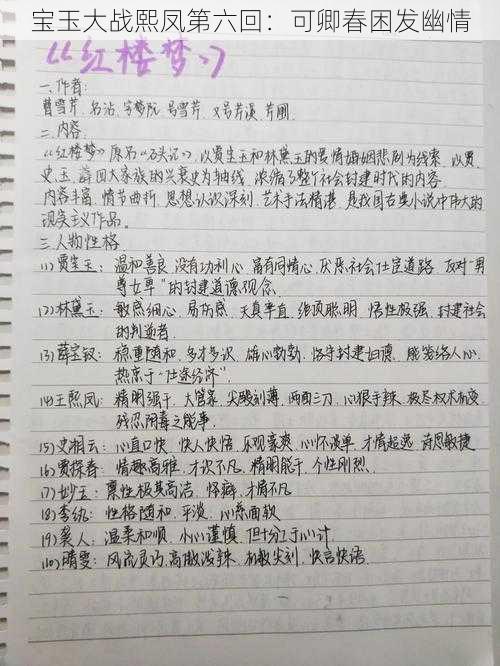 宝玉大战熙凤第六回：可卿春困发幽情
《红楼梦》
一、作者：
曹雪芹、名沾、字梦阮、号雪芹、又号芹溪、芹圃
二、内容：
《红楼梦》原名《石头记》，以贾宝玉和林黛玉的爱情婚姻悲剧为线索，以贾、
史、王、薛四大家族的兴衰史为轴线，浓缩了整个社会封建时代的内容。
内容丰富、情节曲折、思想认识深刻、艺术手法精湛，是我国古典小说中伟大的
现实主义作品。
三、人物性格
(1)贾宝玉：温和善良，没有功利心，富有同情心，厌恶社会仕宦道路，反对“男
尊女卑”的封建道德观念。
(2)林黛玉：敏感细心、易伤感、天真率直、绝顶聪明、悟性极强、封建社会
的叛逆者
(3)薛宝钗：稳重随和、多才多识、雄心勃勃、恪守封建妇德、能笼络人心、
热衷于“仕途经济”.
(4)王熙凤：精明强干、大管家、尖酸刻薄、两面三刀、心狠手辣、极尽权术机变、
残忍阴毒之能事.
(5)史湘云：心直口快、快人快语、乐观豪爽、心怀坦荡、才情超逸、诗思敏捷
(6)贾探春：情趣高雅、才次不凡、精明能干、个性刚烈.
(7)妙玉：禀性极其高洁、怪癖、才情不凡
(8)李纨：性格随和、平淡、心慈面软
(9)袭人：温柔和顺、小心谨慎、但十分工于心计.
(10)晴雯：风流灵巧、高傲泼辣、机敏尖刻、快言快语.